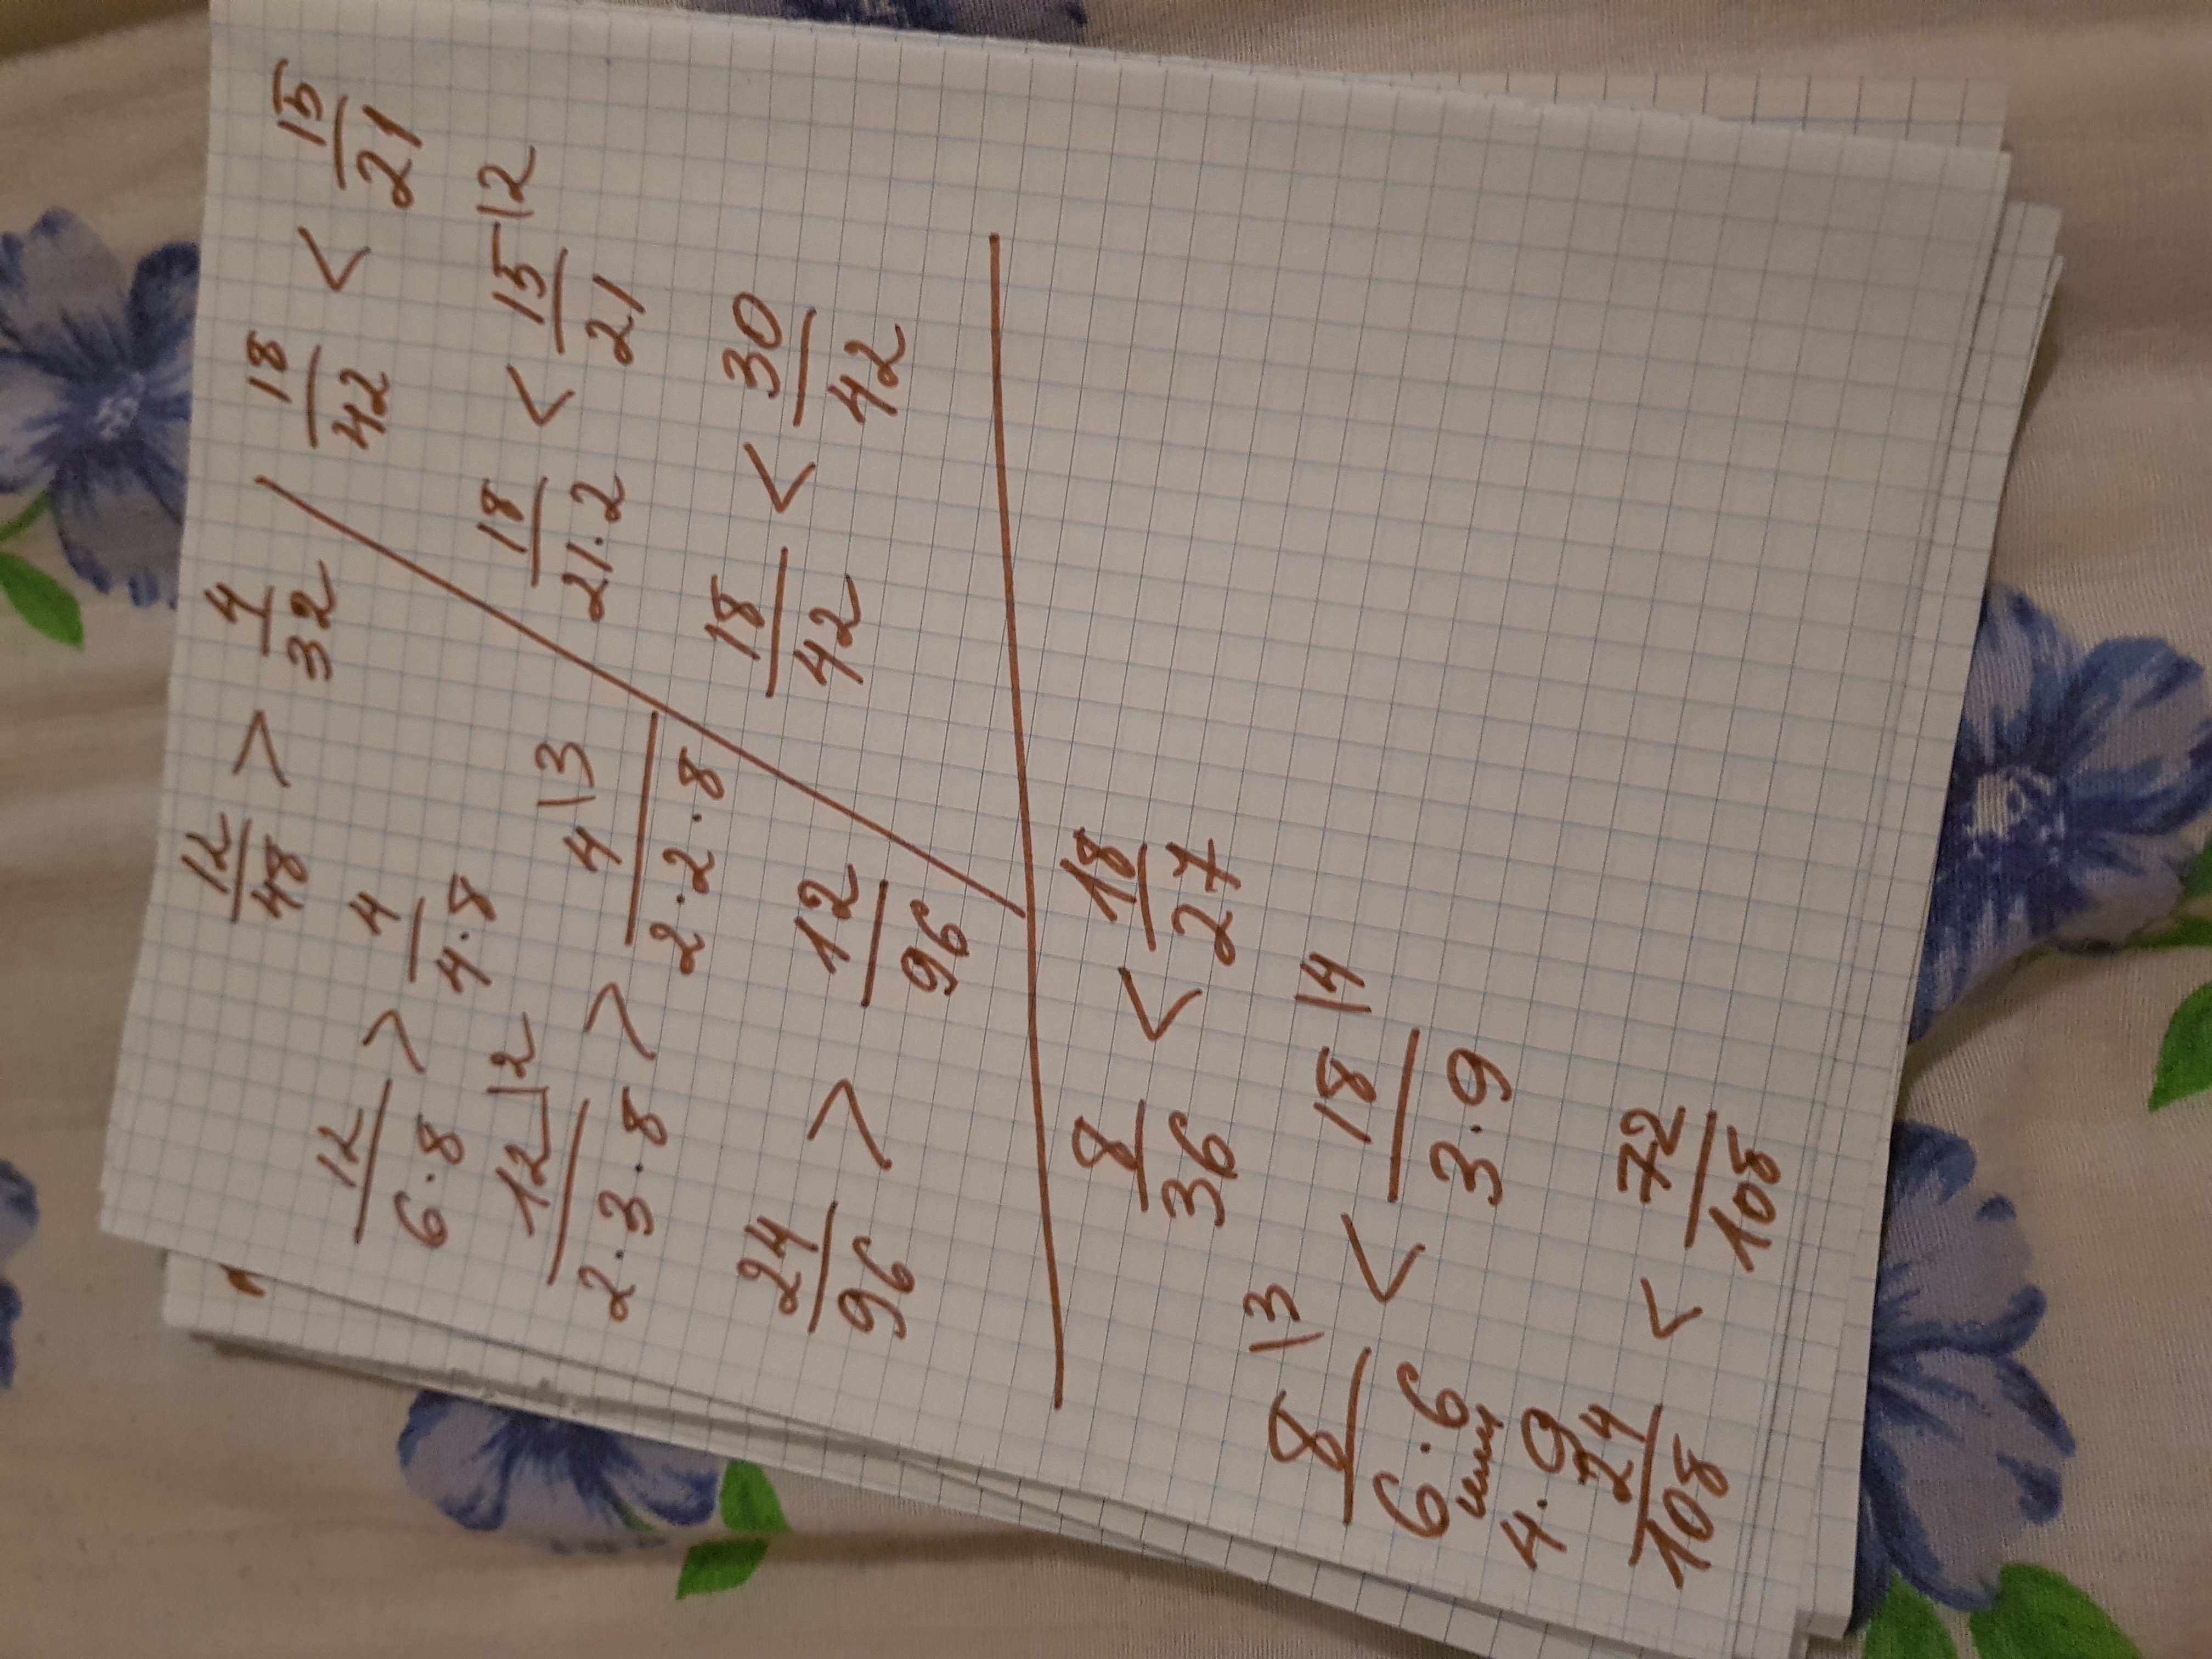 12/48 > 4/32
12/(6·8) > 4/(4·8)
12\2/(2·3·8) > 4\3/(2·2·8)
24/96 > 12/96
18/42 < 15/21
18/(21·2) < 15\2/21
18/42 < 30/42
8/36 < 18/27
8\3/(6·6 < 18\4/(3·9)
или
4·9)
24/108 < 72/108